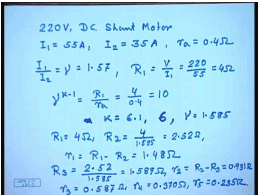 220V, DC. Shunt Motor
I₁ = 55A, I₂ = 35A, ra = 0.4Ω
I₁/I₂ = γ = 1.57, R₁ = V/I₁ = 220/55 = 4Ω
γᴷ⁻¹ = R₁/ra = 4/0.4 = 10
K = 6.1, 6, γ = 1.585
R₁ = 4Ω, R₂ = 4/1.585 = 2.52Ω,
r₁ = R₁ - R₂ = 1.48Ω
R₃ = 2.52/1.585 = 1.589Ω, r₂ = R₂-R₃ = 0.931Ω
r₃ = 0.587Ω, r₄ = 0.370Ω, r₅ = 0.235Ω.